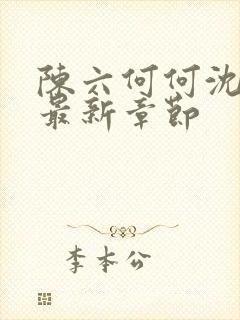 陳六何何沈
最新章節
李本公